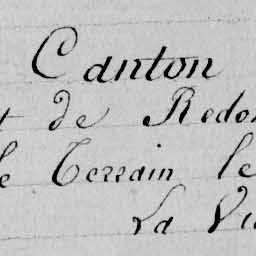 Canton
t de Redon
le Terrain le
La Vi